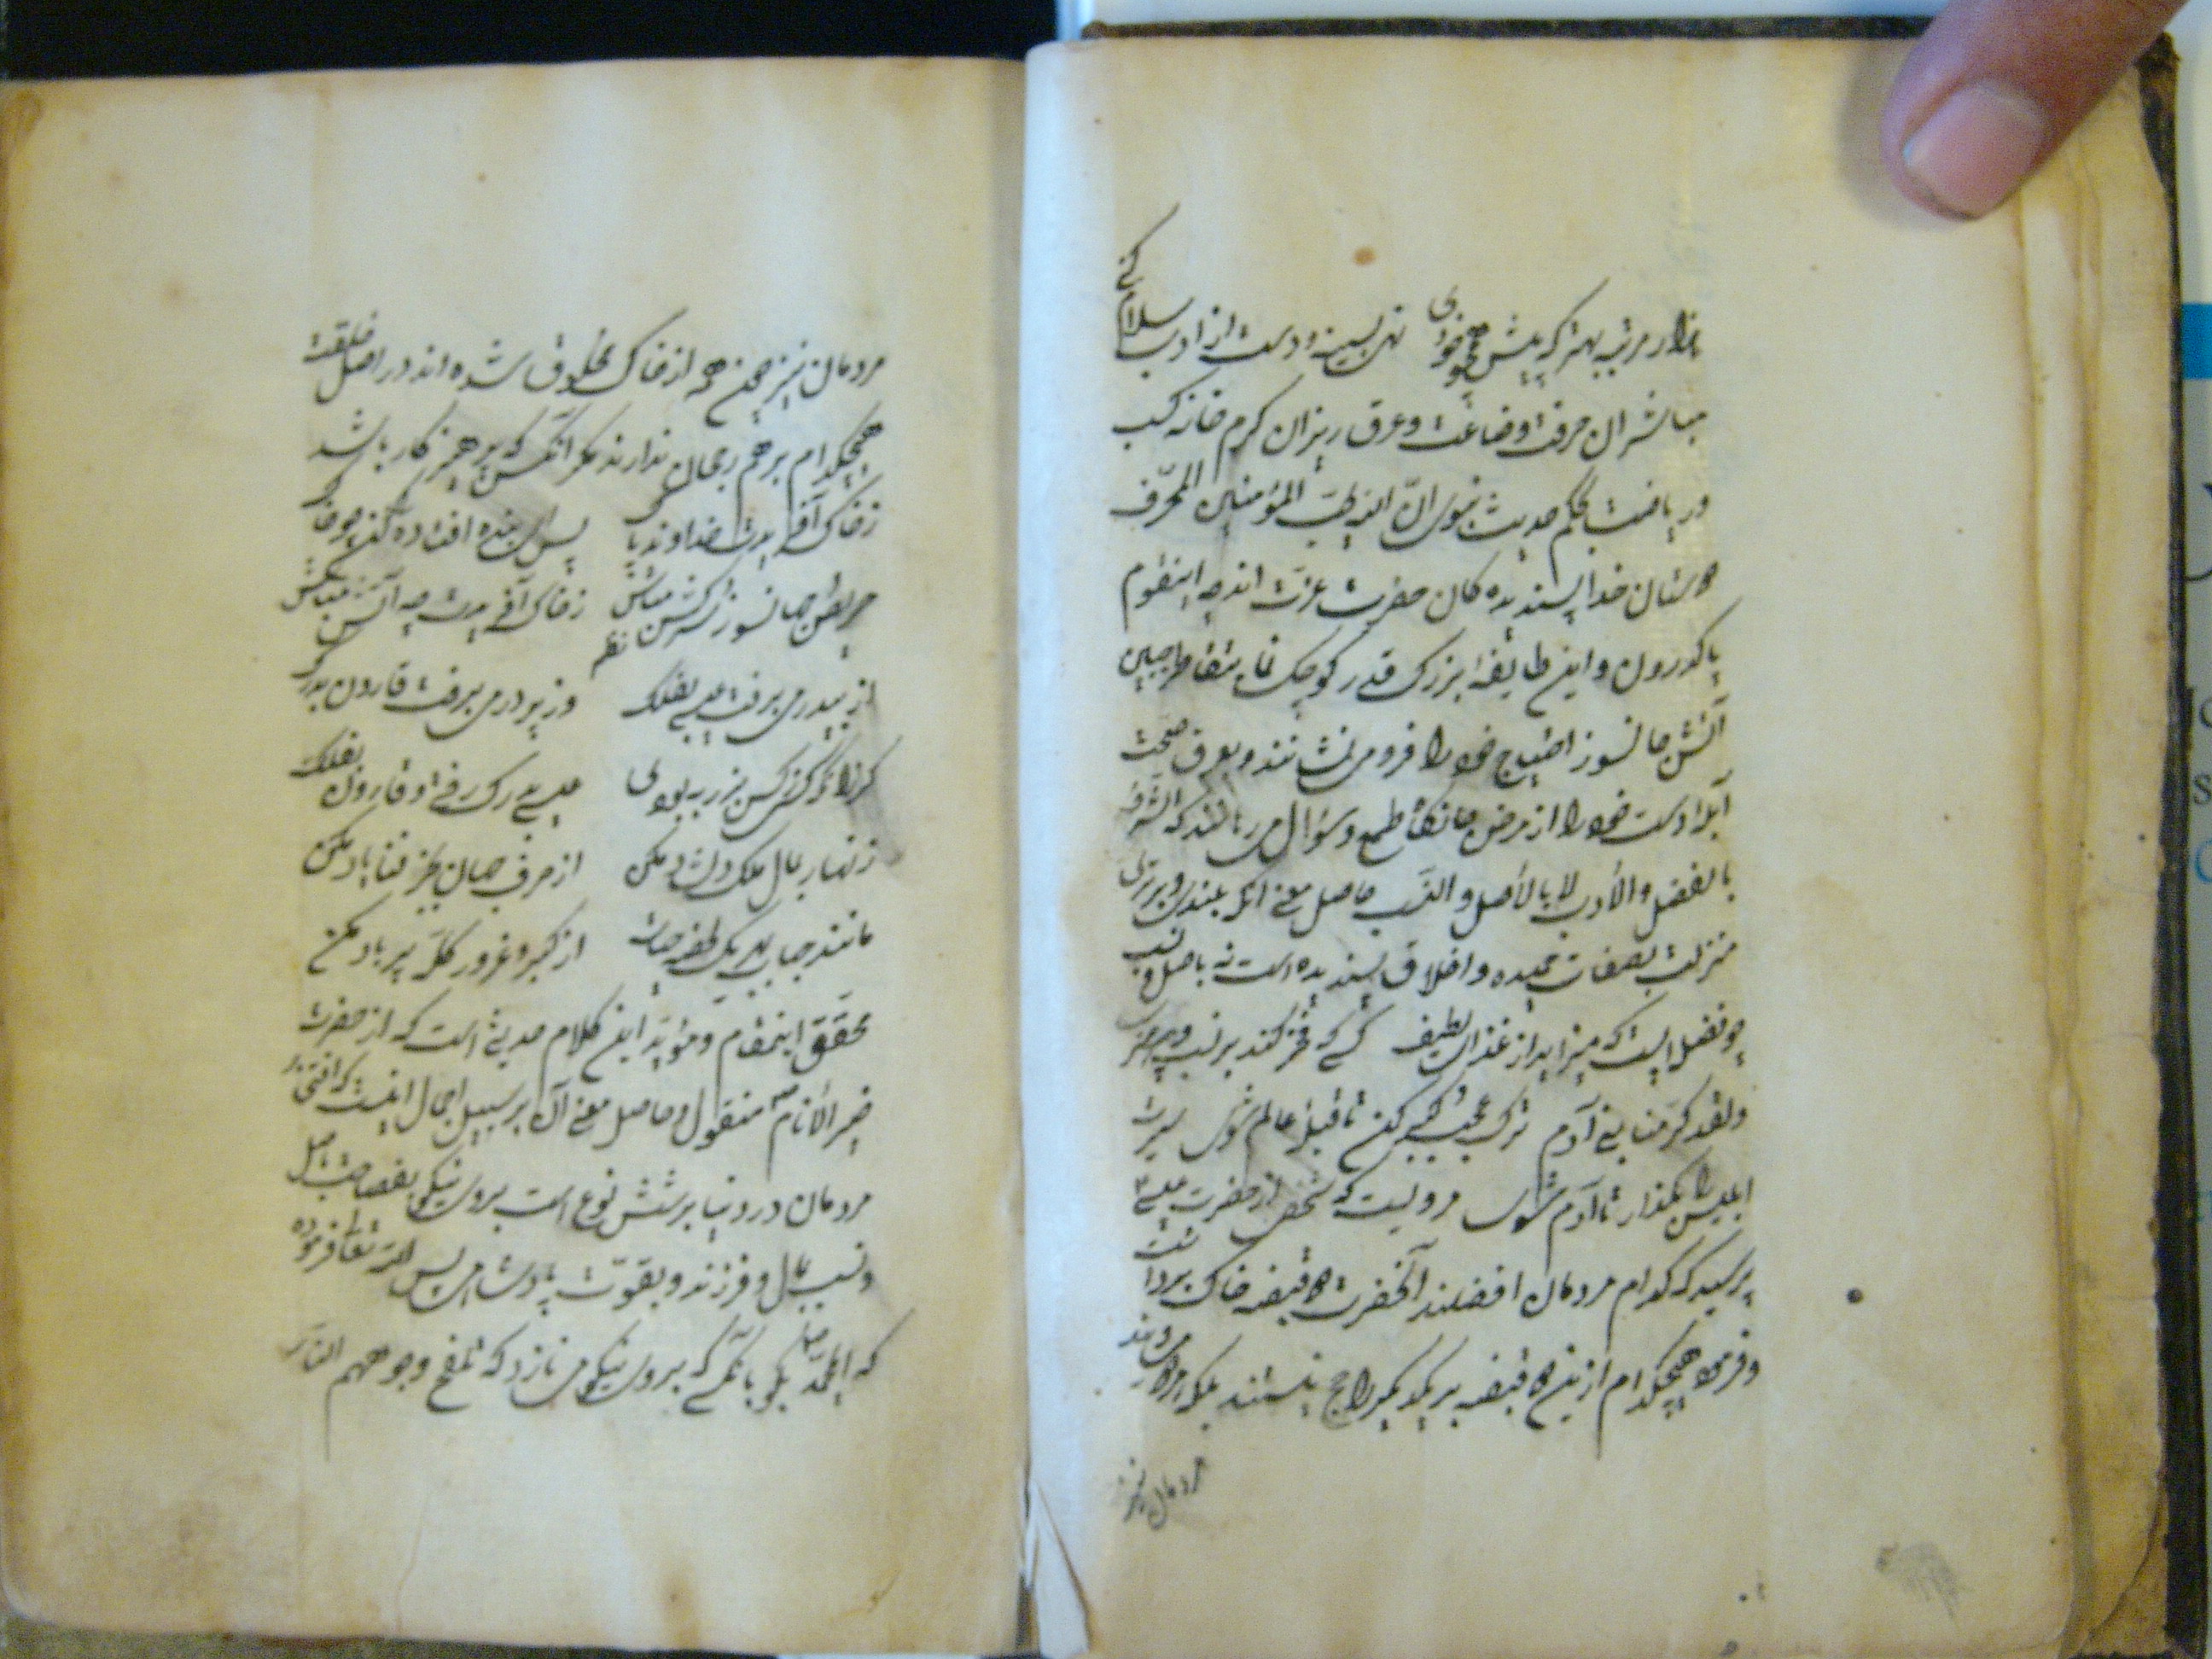 هزار مرتبه بهتر که پیش همچو خودی نهی بسینه دست از ادب سلام کنی
مباشران حرفت و صناعت و عرق ریزان گرم خانه کسب
دریافت بحکم حدیث نبوی انّ الله یحبّ المؤمنین المحرّف
دوستان خدا پسندیده کان حضرت عزّت اند چه اینقوم
پاکدرون و این طایفه بزرگ قدر کوچک نما بتقاطر جبین
آتش جانسوز احتیاج خود را فرو می نشانند و بعرق صحت
خود را از مرض جانکاه طمع و سؤال می رهانند که الشّرف
بالفضل و الأدب لا بالأصل و النّسب حاصل معنی آنکه بلندی و برتری
منزلت بصفات حمیده و اخلاق پسندیده است نه باصل و نسب
چو فضل ایست که میزاید از غذای لطیف کسی که فخر کند بر نسب
ولقد کرّمنا بنی آدم ترک عجب کبر کن تا قبلهٔ عالم شوی سیرت
ابلیس را بگذار تا آدم شوی مرویست که شخصی از حضرت عیسی
پرسید که کدام مردمان افضلند آنحضرت دو قبضه خاک برداشت
و فرمود هیچکدام ازین دو قبضه بر یکدیگر راجح نیستند بلکه
مردمان نیز
مردمان نیز همین همه از خاک مخلوق شده اند در اصل خلقت
هیچکدام بر هم رجحان ندارند مگر آنکس که پرهیزکار باشد
ز خاک آفریدت خداوند پاک پس ای بنده افتادگی کن چو خاک
حریص و جهانسوز و سرکش مباش ز خاک آفریدت چه آتش مباش
نظم
از بیدرمی برفت عیسی بفلک وز پر درمی برفت قارون بدرک
گر زانکه کسی بزر بودی عیسی بدرک رفتی و قارون بفلک
زنهار بمال ملک دل شاد مکن از صرف جهان بجز فنا یاد مکن
مانند حباب بهر یک لحظه حیات از کبر و غرور کلّه پر باد مکن
محقق اینمقام و مؤیّد این کلام حدیثی است که از حضرت
خیر الأنام ص منقول و حاصل معنی آن بر سبیل اجمال اینست که افتخار
مردمان در دنیا بر شش نوع است بروی نیکو بفصاحت باصل
و نسب بمال و فرزند و بقوّت بپادشاهی پس الله تعالی فرموده
که ای محمّد بگو بآنکسی که بروی نیکو می نازد که تلفح وجوههم النّار